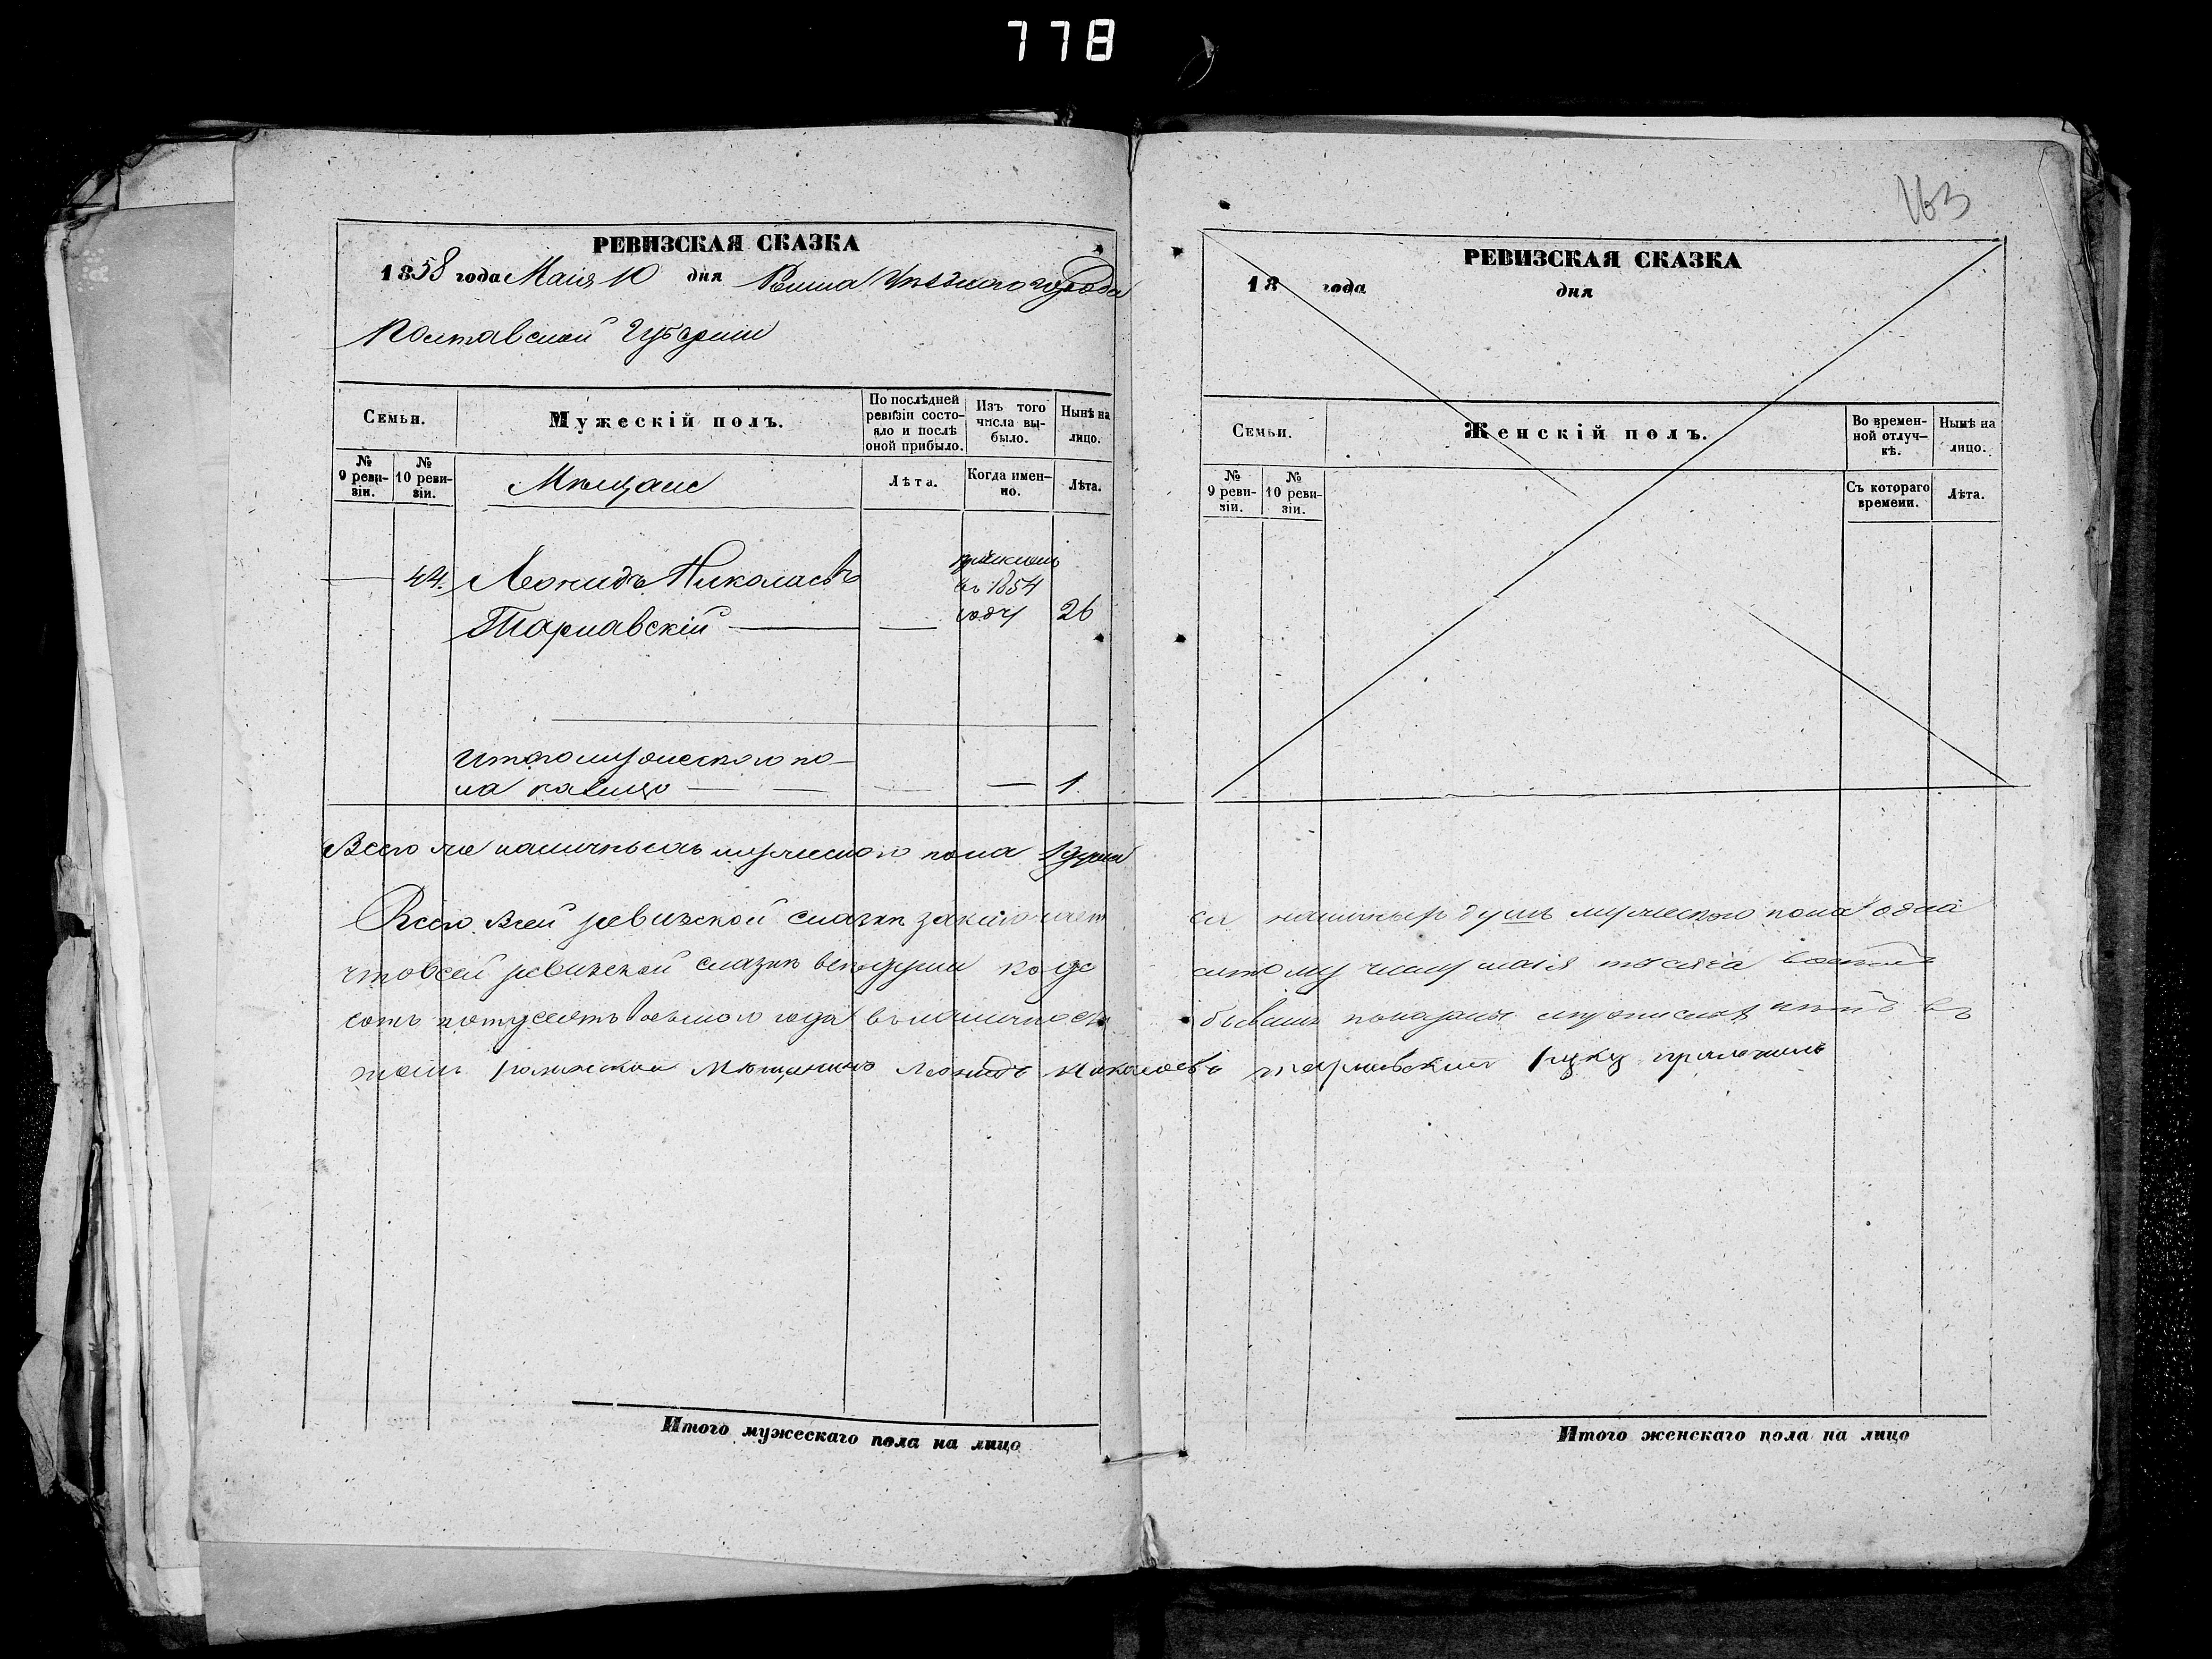 778
163
РЕВИЗСКАЯ СКАЗКА
1858 года Маія 10 дня Ромна Уѣзднаго города
Полтавской Губерніи
Семьи.
Мужескій полъ.
По послѣдней ревизіи состояло и послѣ оной прибыло.
Изъ того числа выбыло.
Нынѣ на лицо.
№ 9 ревизіи.
№ 10 ревизіи.
Мѣщане
Лѣта.
Когда именно.
Лѣта.
44. Леонидъ Николаевъ
Тарнавскій
въ 1854
году
26
Итого мужескаго по-
ла налицо 1
Всего же наличныхъ мужескаго пола 1 душа
РЕВИЗСКАЯ СКАЗКА
18 года дня
Семьи.
Женскій полъ.
Во временной отлучкѣ.
Нынѣ на лицо.
№ 9 ревизіи.
№ 10 ревизіи.
Съ котораго времени.
Лѣта.
Всего всей ревизской сказкѣ заключает ся наличныхъ душъ мужескаго пола одна
что всей ревизской сказкѣ всѣ души маія
сотъ пятдесятъ восьмого года въ наличнос бывшія показаны
мѣщанинъ Леонидъ Николаевъ Тарнавскій руку приложилъ
Итого мужескаго пола на лицо
Итого женскаго пола на лицо